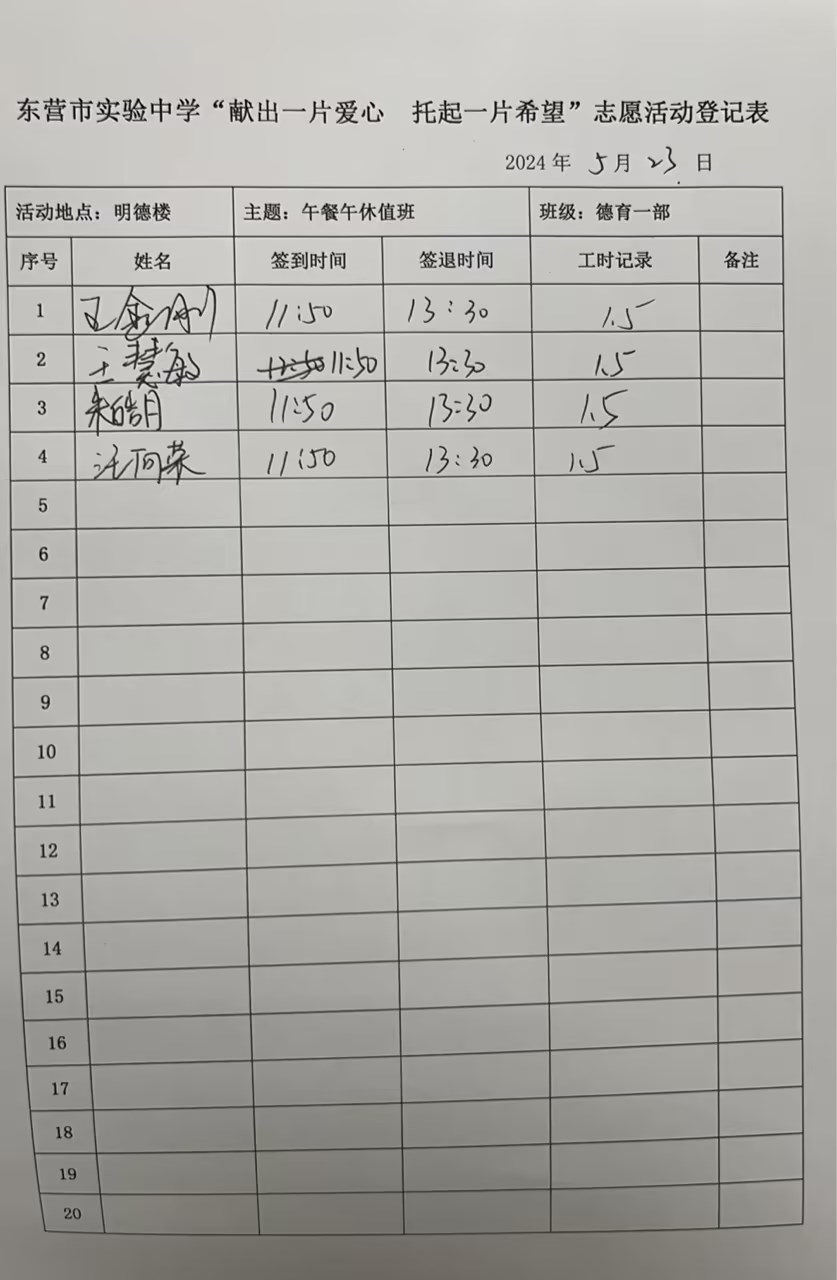 东营市实验中学“献出一片爱心 托起一片希望”志愿活动登记表
2024 年 5 月 23 日
活动地点：明德楼 主题：午餐午休值班 班级：德育一部
序号 姓名 签到时间 签退时间 工时记录 备注
1 王金刚 11:50 13:30 1.5
2 王慧敏 12:50 11:50 13:30 1.5
3 朱皓月 11:50 13:30 1.5
4 汪向荣 11:50 13:30 1.5
5
6
7
8
9
10
11
12
13
14
15
16
17
18
19
20